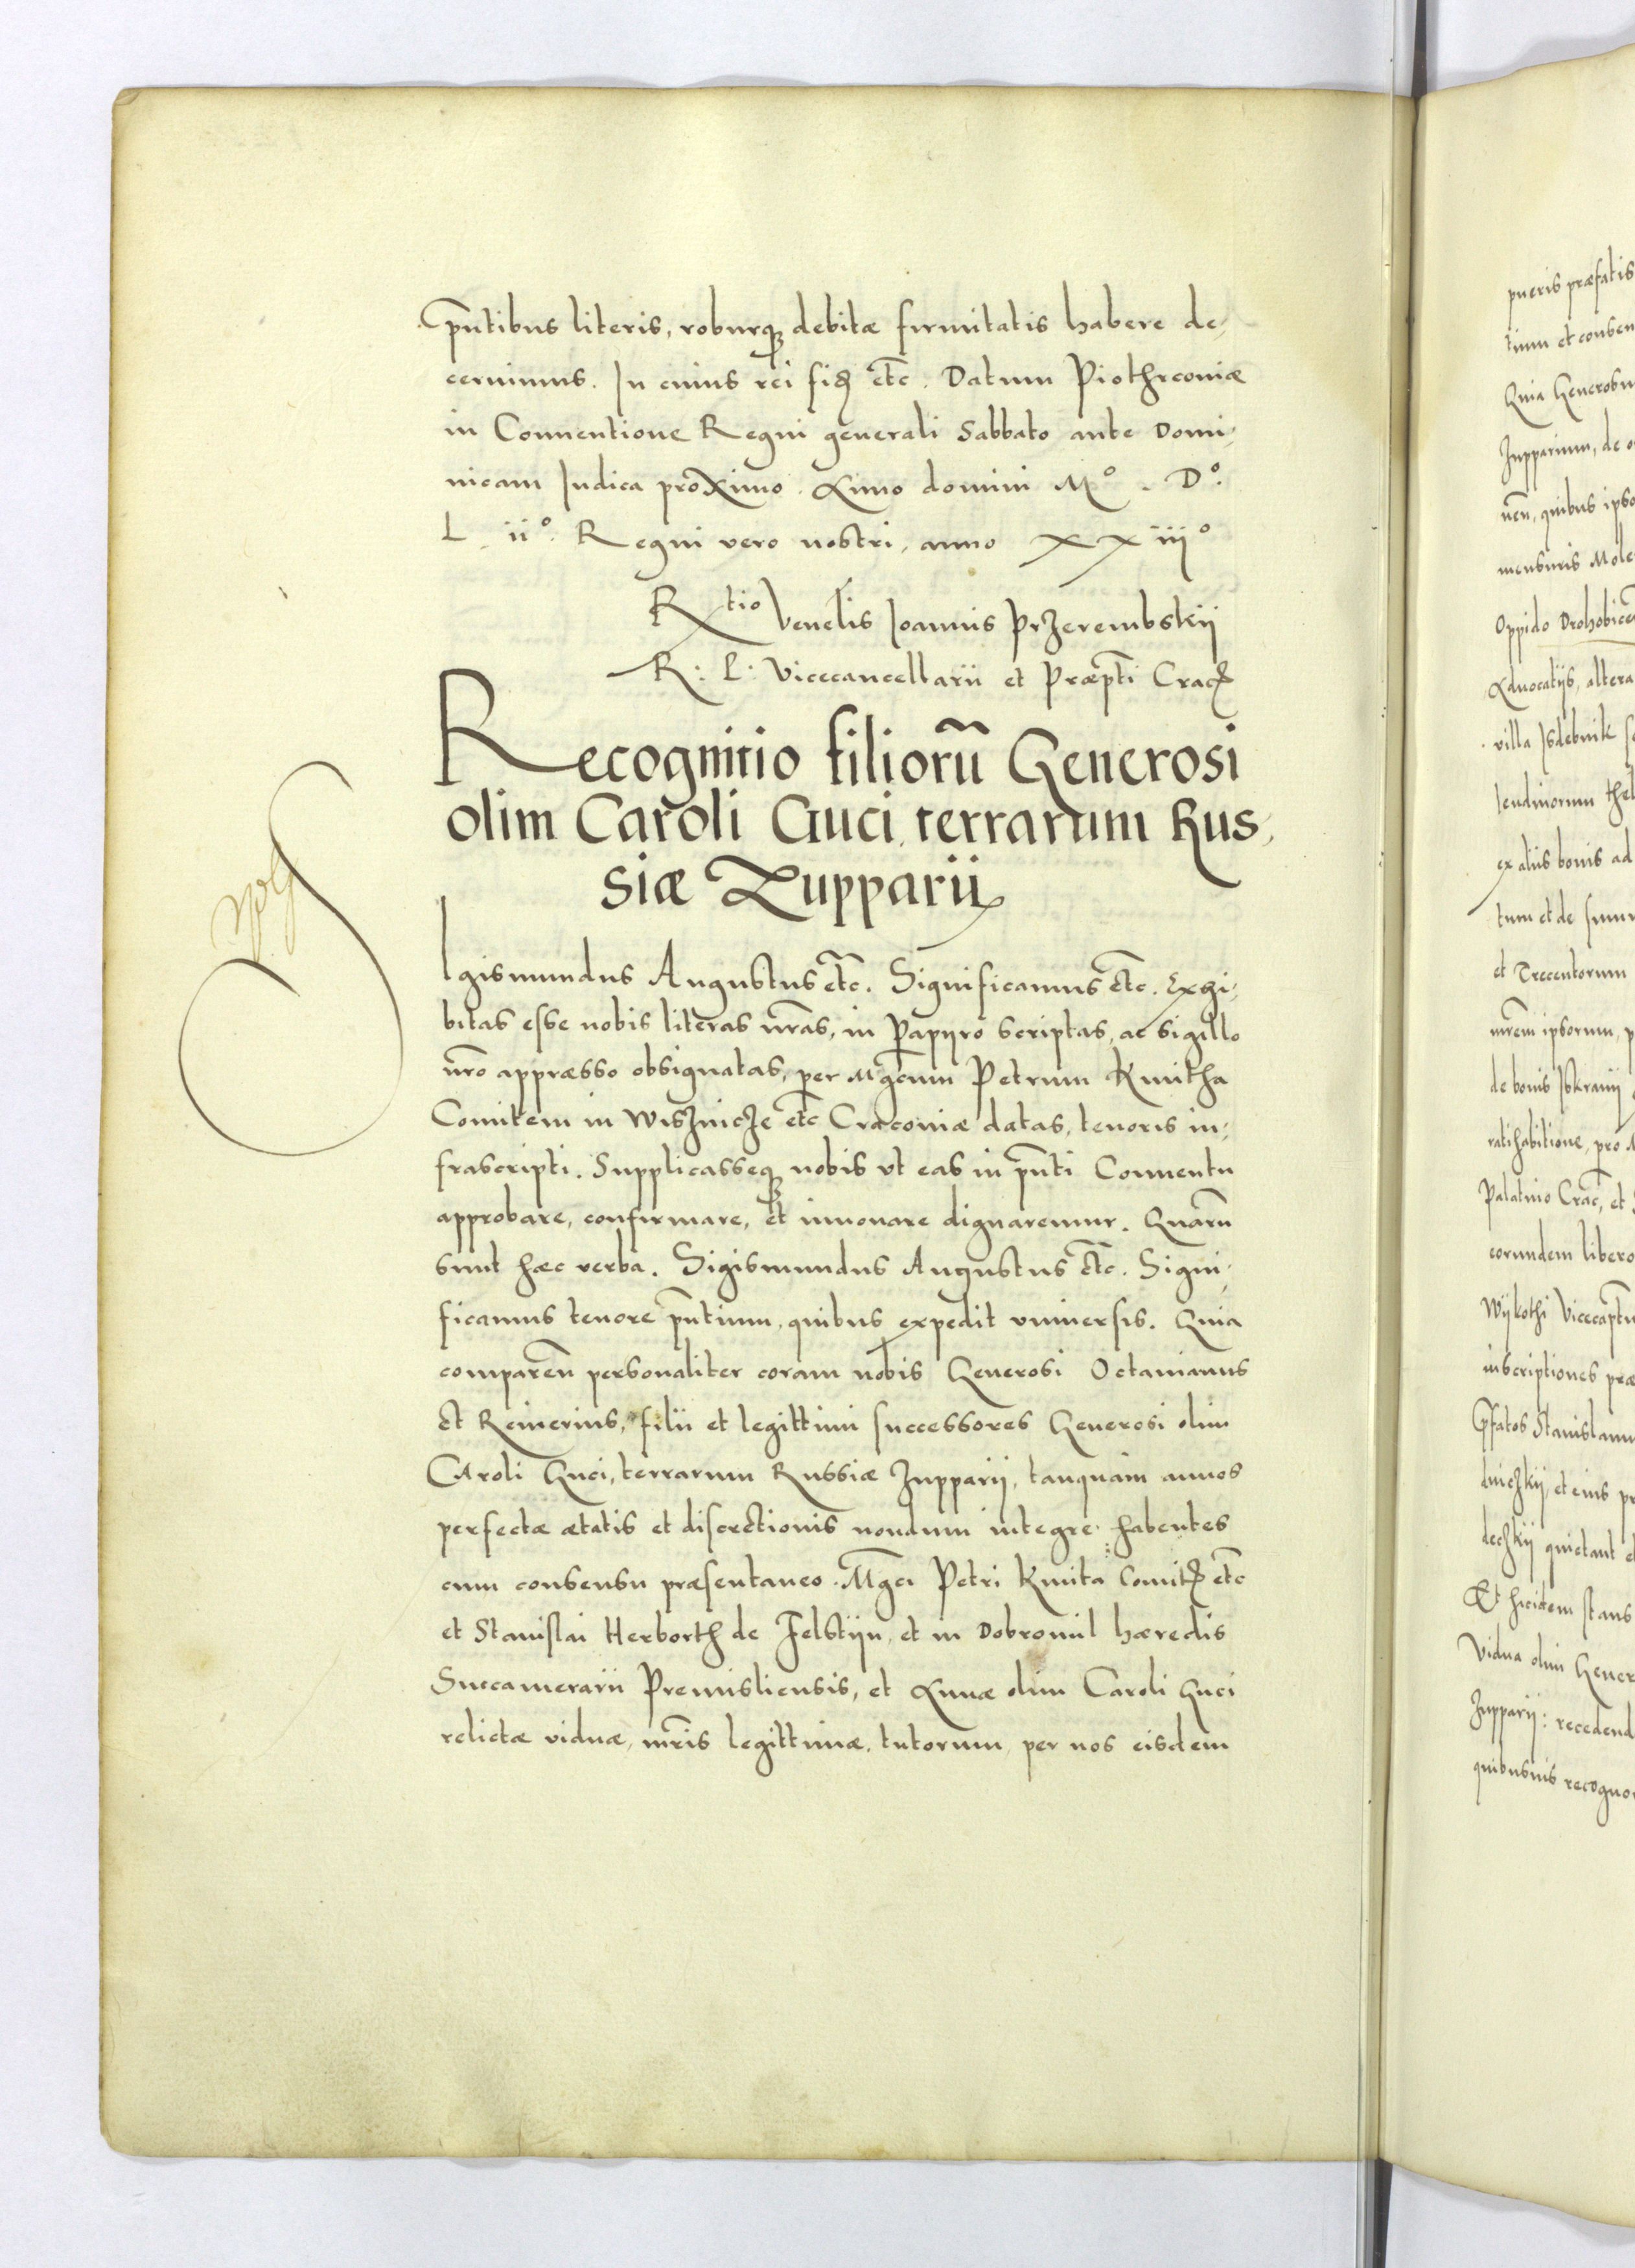 pn̄tibus literis, roburq₃ debitæ firmitatis habere de-
cernimus. In cuius rei fidꝫ etc. Datum Piothrconiæ
in Conuentione Regni generali Sabbato ante Domi-
nicam Iudica proximo. Anno domini Mº. Dº.
L iiº. Regni vero nostri, anno XXiiiº
Rtio Venelis Joannis Przerembskij
R: P: Vicecancellarii et Præpti Cracꝫ
Recognitio filiorū Generosi
olim Caroli Guci terrarum Rus-
siæ Zupparij
S
Igismundus Augustus etc. Significamus etc. Exhi-
bitas esse nobis literas nr̄as, in Papyro scriptas, ac sigillo
nr̄o appræsso obsignatas, per Mgcum Petrum Kmitha
Comitem in Wisznicze etc Cracouiæ datas, tenoris in-
frascripti. Supplicasseq₃ nobis vt eas in pn̄ti Conuentu
approbare, confirmare, et innouare dignaremur. Quarū
sunt hæc verba. Sigismundus Augustus etc. Signi-
ficamus tenore pn̄tium, quibus expedit vniuersis. Quia
comparen̄ personaliter coram nobis Generosi Octauianus
et Reinerius, filii et legittimi successores Generosi olim
Caroli Guci, terrarum Russiæ Zupparij, tanquam annos
perfectæ ætatis et discretionis nondum integre habentes
cum consensu præsentaneo Mgci Petri Kmita Comitꝫ etc
et Stanislai Herborth de Felstijn, et in Dobromil hæredis
Succamerarii Premisliensis, et Annæ olim Caroli Guci
relictæ viduæ, mr̄is legittimæ, tutorum, per nos eisdem
pueris præfatis
tium et consen
Quia Generosu
Zupparium, de
nen̄, quibus ipso
mensuris Mole
Oppido Drohobicen
Aduocatijs, altera
villa Isdebnik
ex aliis bonis ad
tum et de summ
et Trecentorum
mr̄em ipsorum, p
de bonis Iskranij
ratihabitione, pro
Palatino Crac̄, et
eorundem libero
Wijkothi Vicecaptn
inscriptiones præ
Pfatos Stanislaum
dniczkij, et eius pr
deczkij quietant et
Et ibidem stans
Vidua olim Gener
Zupparij: recedend
quibusuis recogno